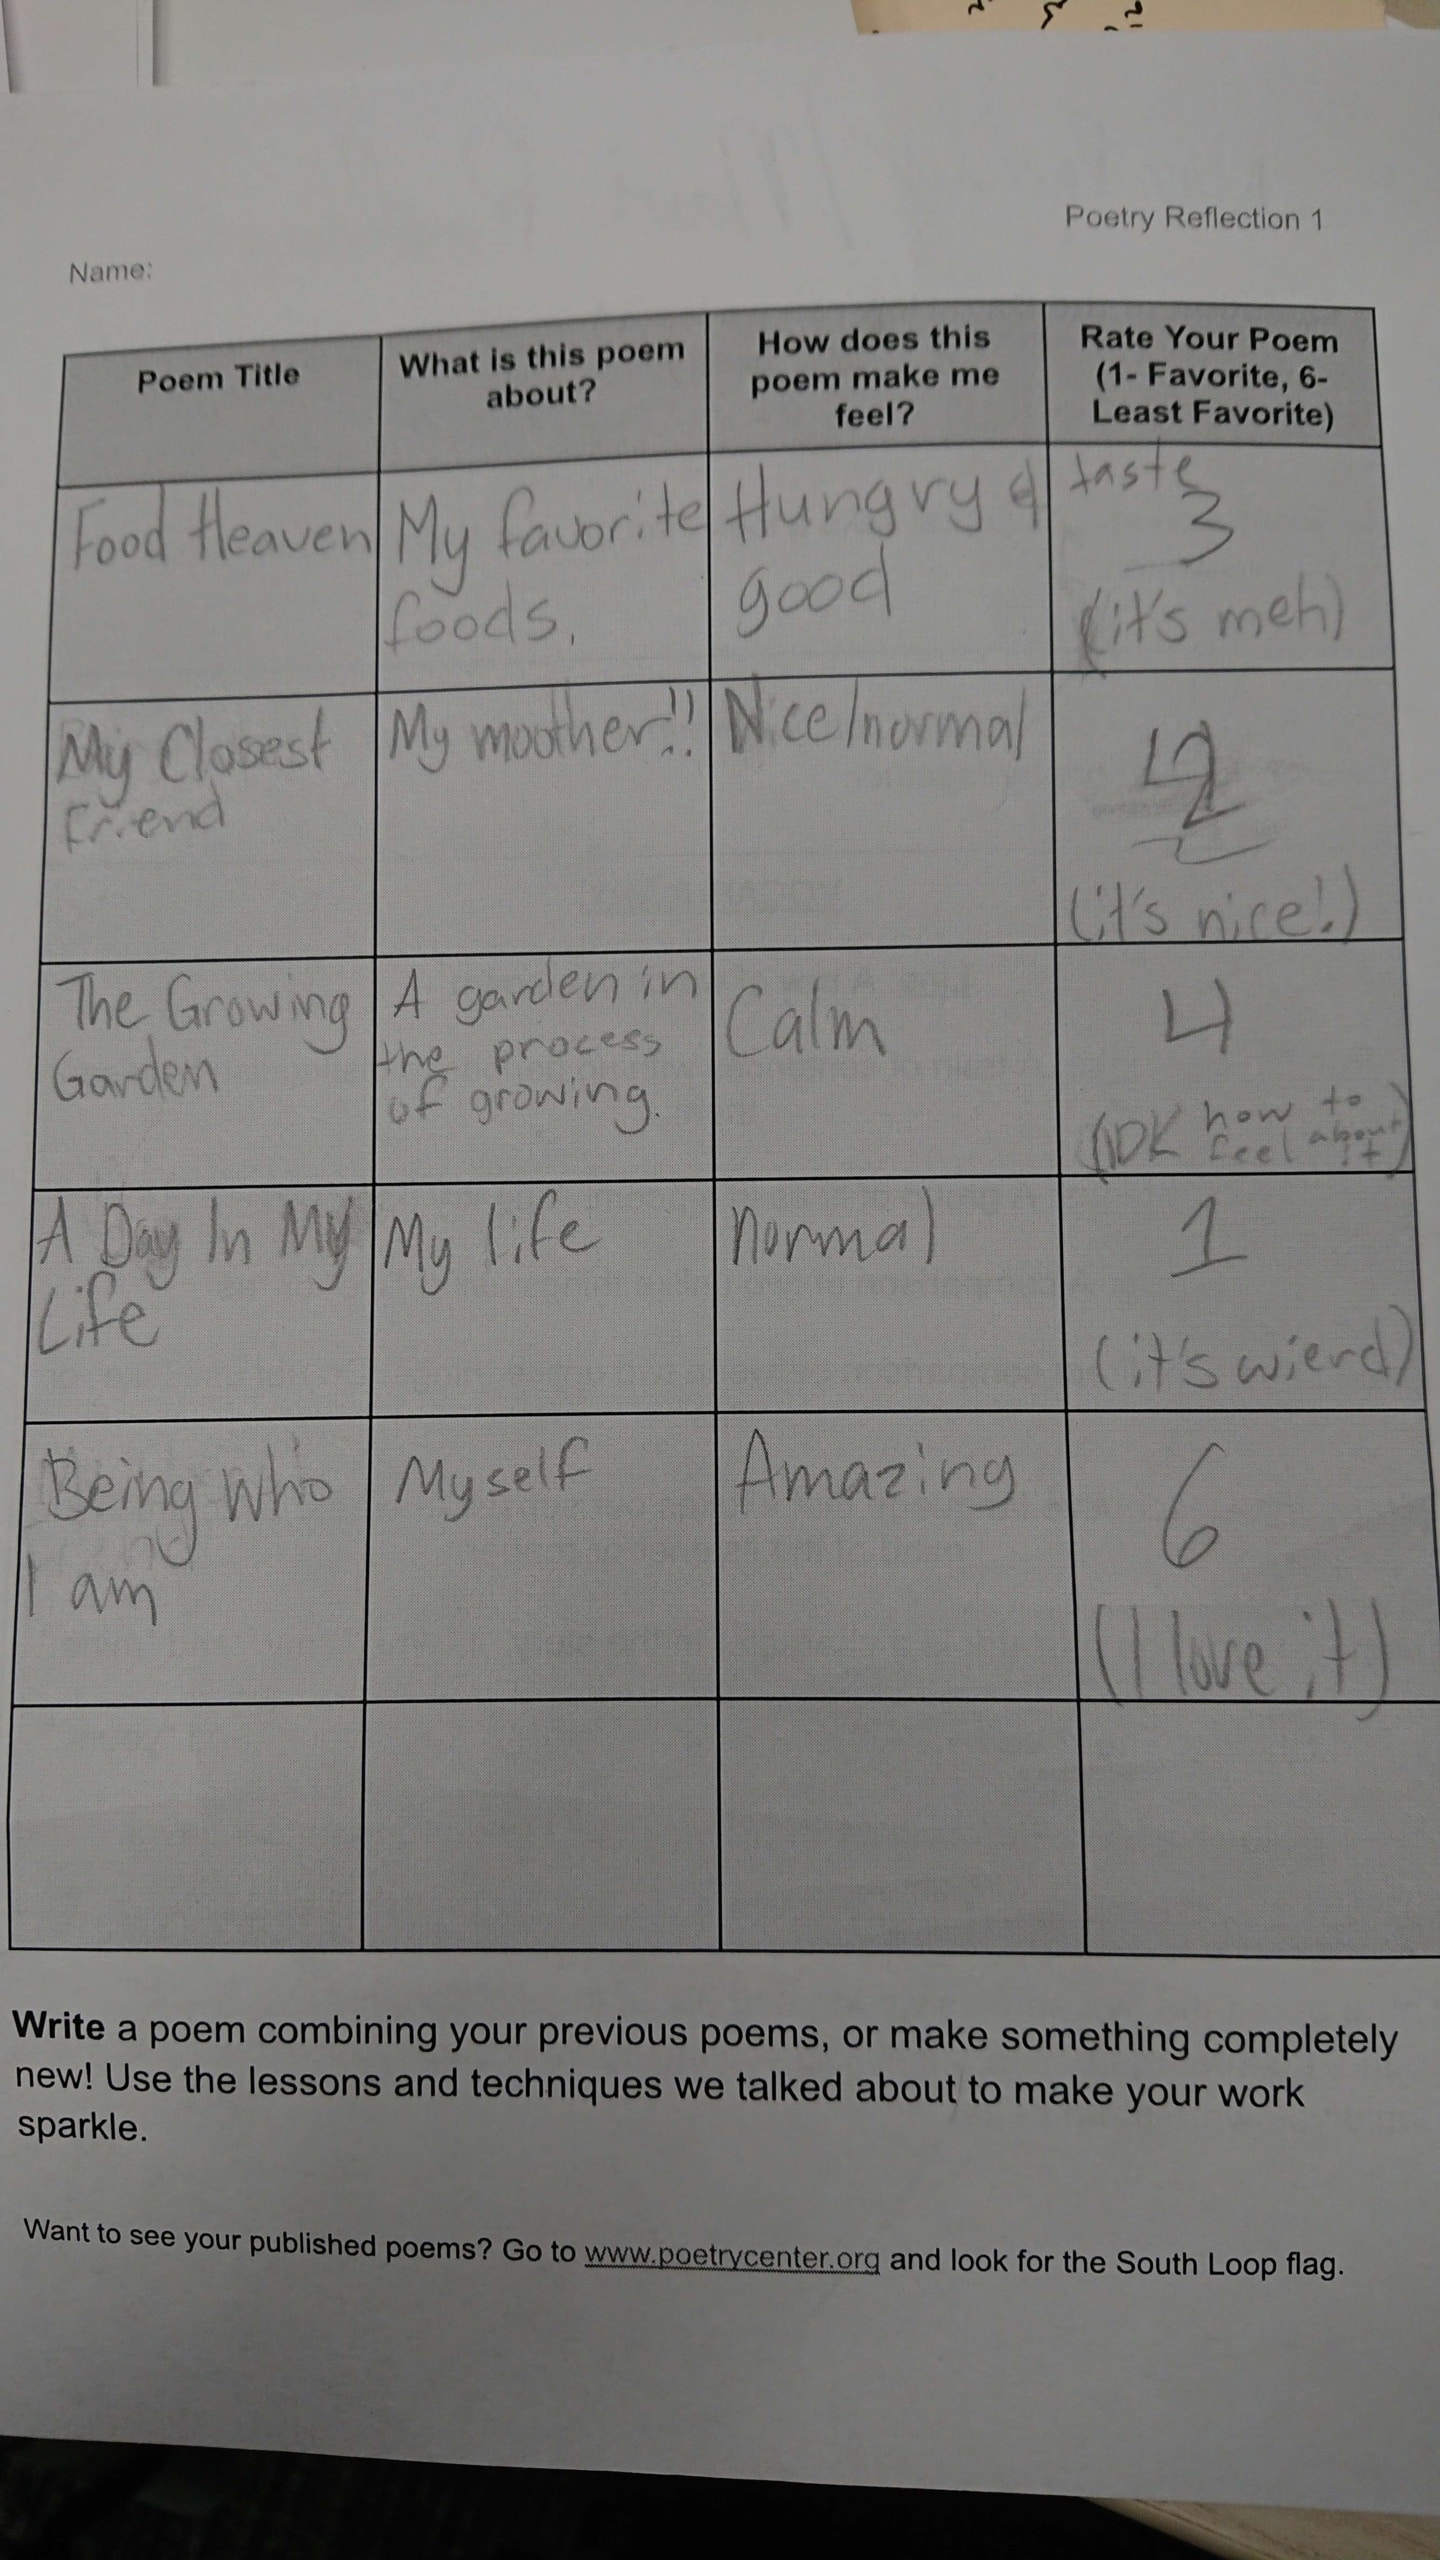 Poetry Reflection 1
Name:
Poem Title
What is this poem
about?
How does this
poem make me
feel?
Rate Your Poem
(1- Favorite, 6-
Least Favorite)
Food Heaven
My favorite
foods.
Hungry &
good
taste
3
(it's meh)
My Closest
Friend
My moother!!
Nice/normal
(it's nice!)
The Growing
Garden
A garden in
the process
of growing.
Calm
4
(IDK how to
feel about
it)
A Day In My
Life
My life
normal
1
(it's wierd)
Being who
I am
Myself
Amazing
6
(I love it)
Write a poem combining your previous poems, or make something completely
new! Use the lessons and techniques we talked about to make your work
sparkle.
Want to see your published poems? Go to www.poetrycenter.org and look for the South Loop flag.